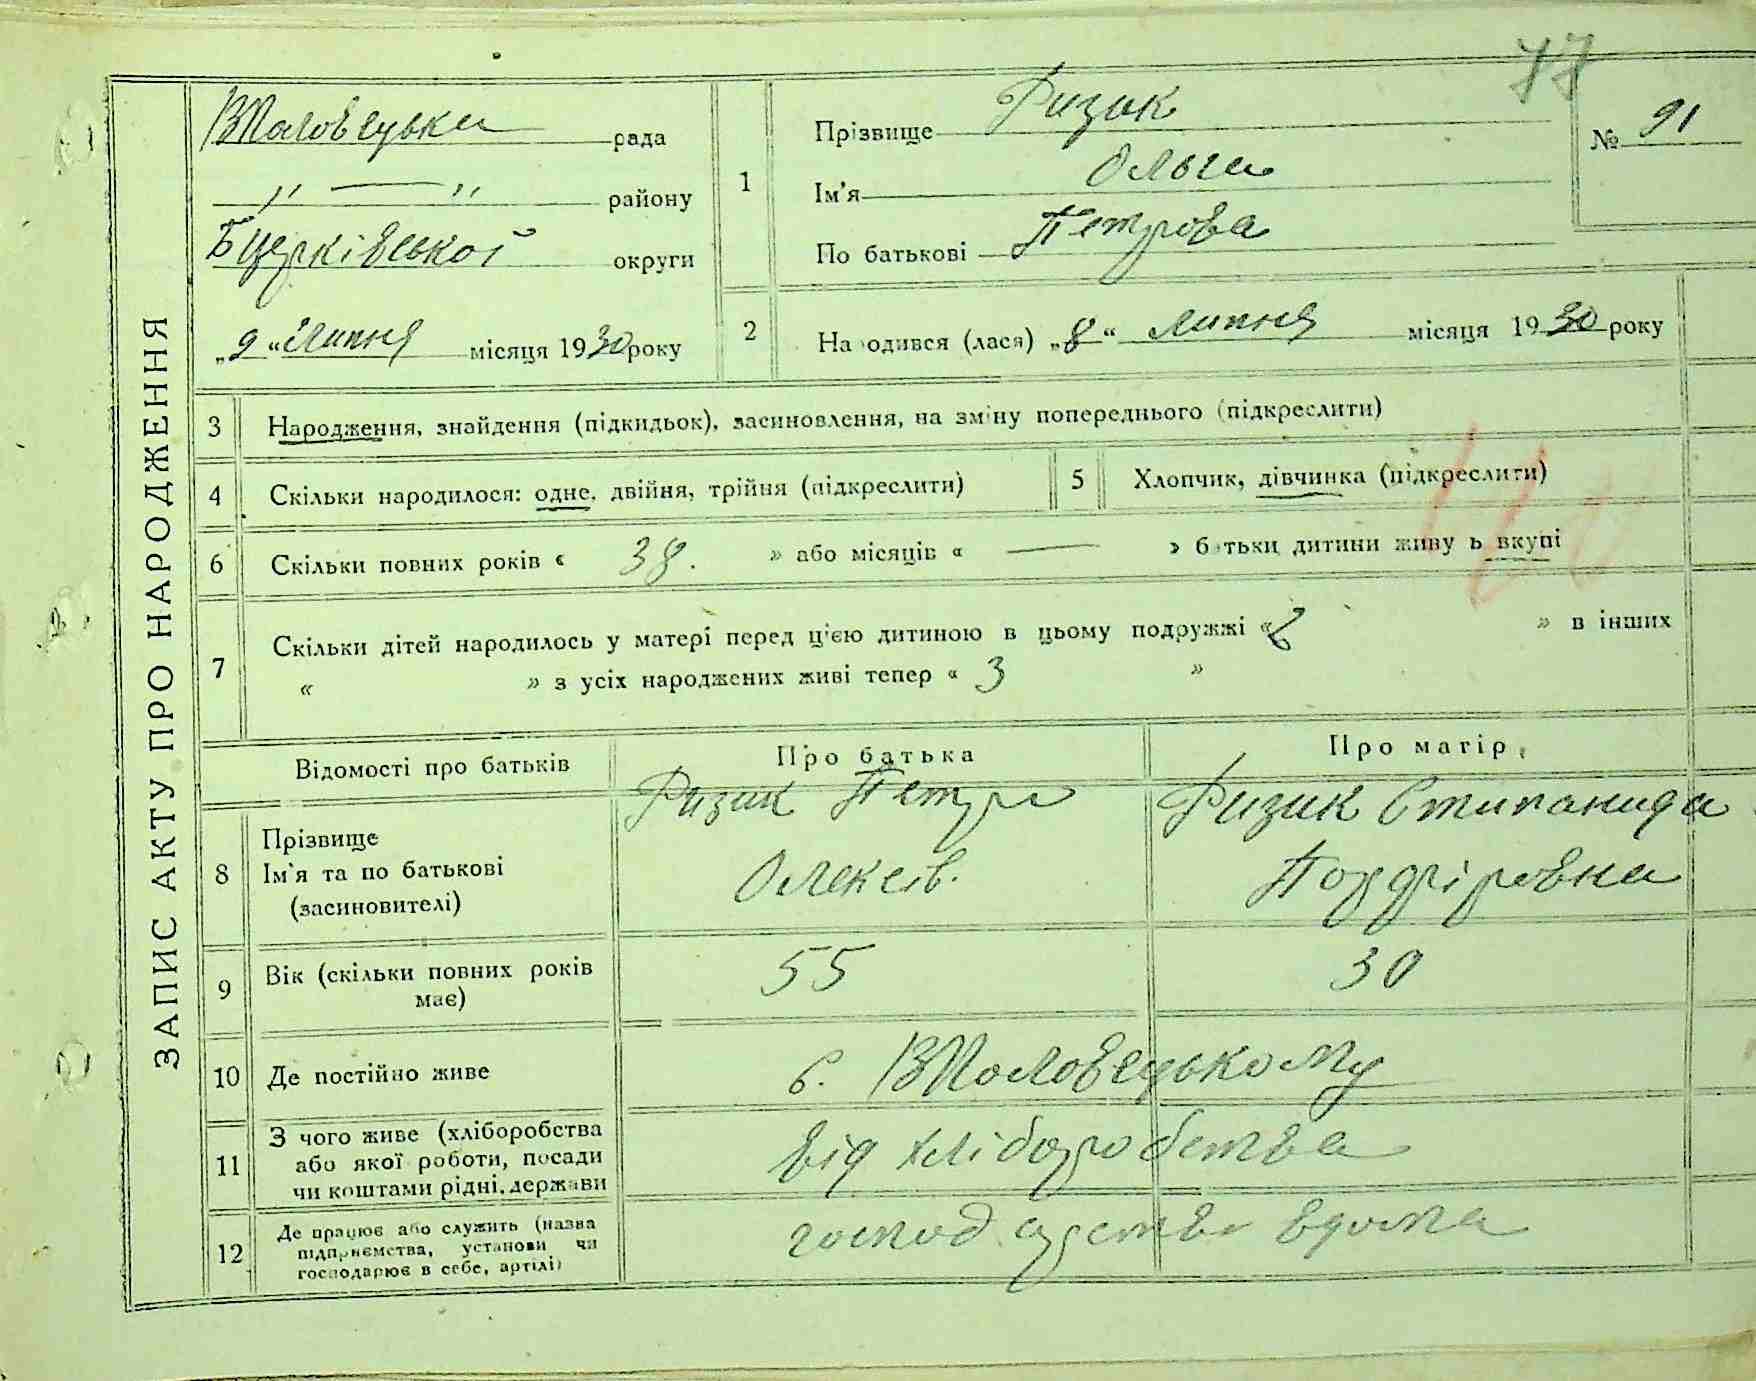 77
ЗАПИС АКТУ ПРО НАРОДЖЕННЯ
ВПоловецька рада
" — " району
Бцерківської округи
„9“ Липня місяця 1930 року
1
Прізвище Ризик
Ім'я Ольга
По батькові Петрова
№ 91
2
На одився (лася) „8“ липня місяця 1930 року
3 Народження, знайдення (підкидьок), засиновлення, на зміну попереднього (підкреслити)
4 Скільки народилося: одне, двійня, трійня (підкреслити)
5 Хлопчик, дівчинка (підкреслити)
6 Скільки повних років « 38. » або місяців « — » батьки дитини живу ь вкупі
7 Скільки дітей народилось у матері перед цією дитиною в цьому подружжі « » в інших
« » з усіх народжених живі тепер « 3 »
Відомості про батьків
Про батька
Про матір
8 Прізвище
Ім'я та по батькові
(засиновителі)
Ризик Петро
Олексів.
Ризик Стипанида
9 Вік (скільки повних років
має)
55
30
10 Де постійно живе
с. ВПоловецькому
11 З чого живе (хліборобства
або якої роботи, посади
чи коштами рідні, держави
від хліборобства
12 Де працює або служить (назва
підприємства, установи чи
господарює в себе, артілі)
господ вдома